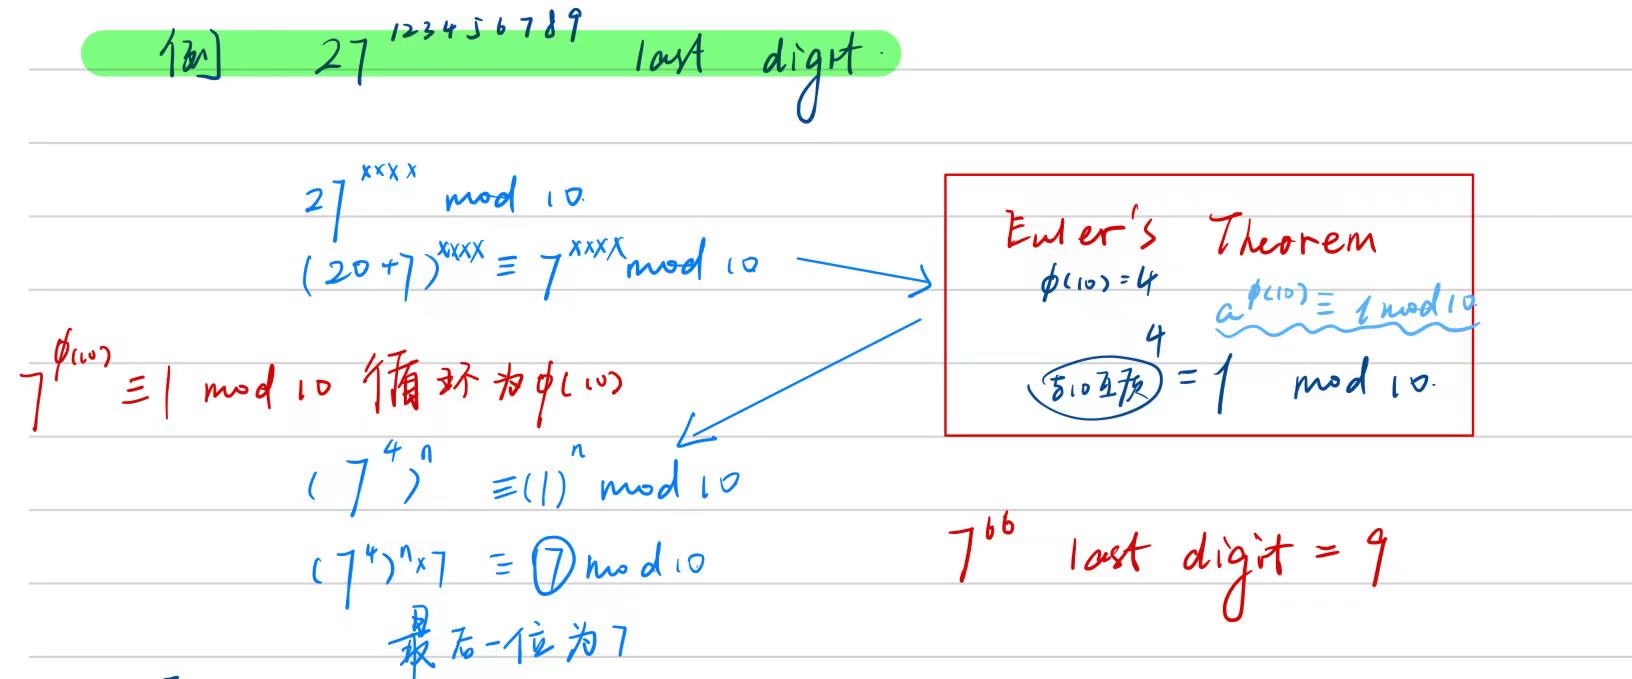 例 27^123456789 last digit.
27^xxxx mod 10.
(20+7)^xxxx ≡ 7^xxxx mod 10
Euler's Theorem
φ(10)=4
a^φ(10) ≡ 1 mod 10
与10互质^4 = 1 mod 10.
7^φ(10) ≡ 1 mod 10 循环为φ(10)
(7^4)^n ≡ (1)^n mod 10
(7^4)^n × 7 ≡ 7 mod 10
7^66 last digit = 9
最后一位为7